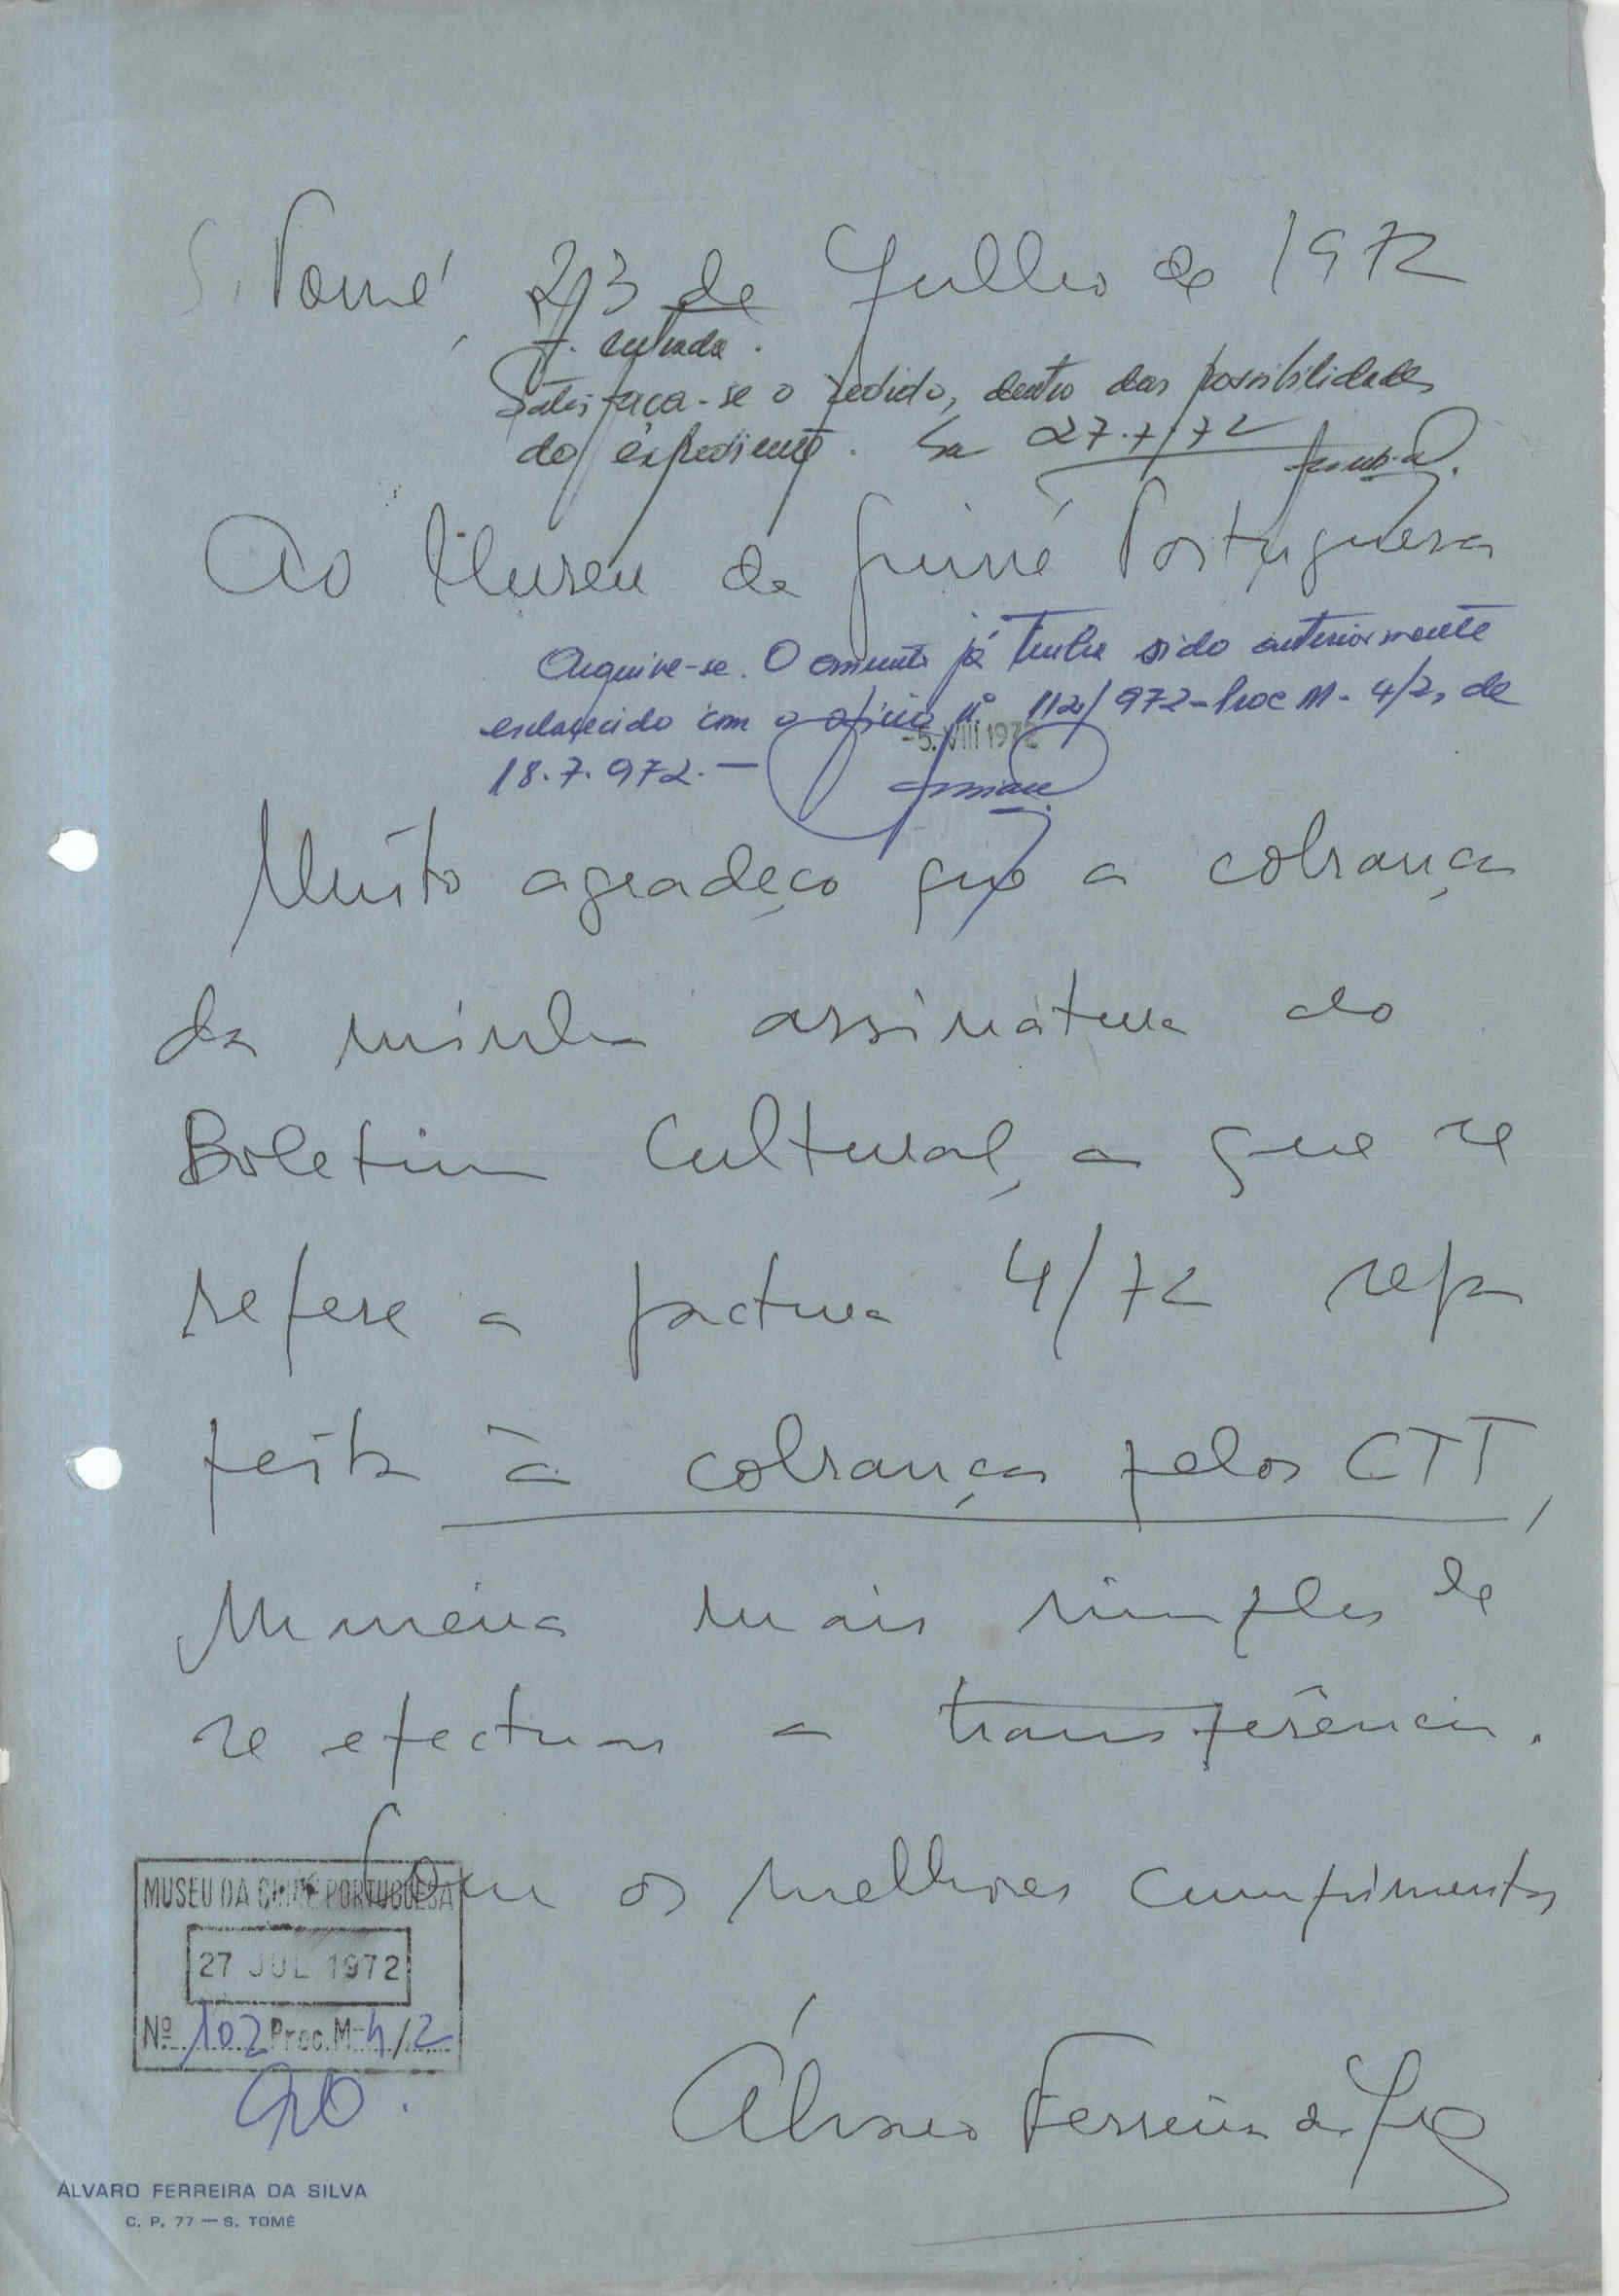 S. Tomé, 23 de Julho de 1972
J. entrada.
Satisfaça-se o pedido, dentro das possibilidades
do expediente. 27.7/72
Ao Museu da Guiné Portuguesa
Arquive-se. O assunto já tinha sido anteriormente
esclarecido com o ofício nº 112/972-Proc M-4/2, de
-5. VIII 1972
18.7.972.—
Muito agradeço que a cobrança
da minha assinatura do
Boletim Cultural, a que se
refere a factura 4/72 seja
feita à cobrança pelos CTT,
maneira mais simples de
se efectuar a transferência.
Com os melhores cumprimentos
MUSEU DA GUINÉ PORTUGUESA
27 JUL 1972
Nº 102 Proc. M-4/2
Álvaro Ferreira da Silva
ÁLVARO FERREIRA DA SILVA
C. P. 77 — S. TOMÉ